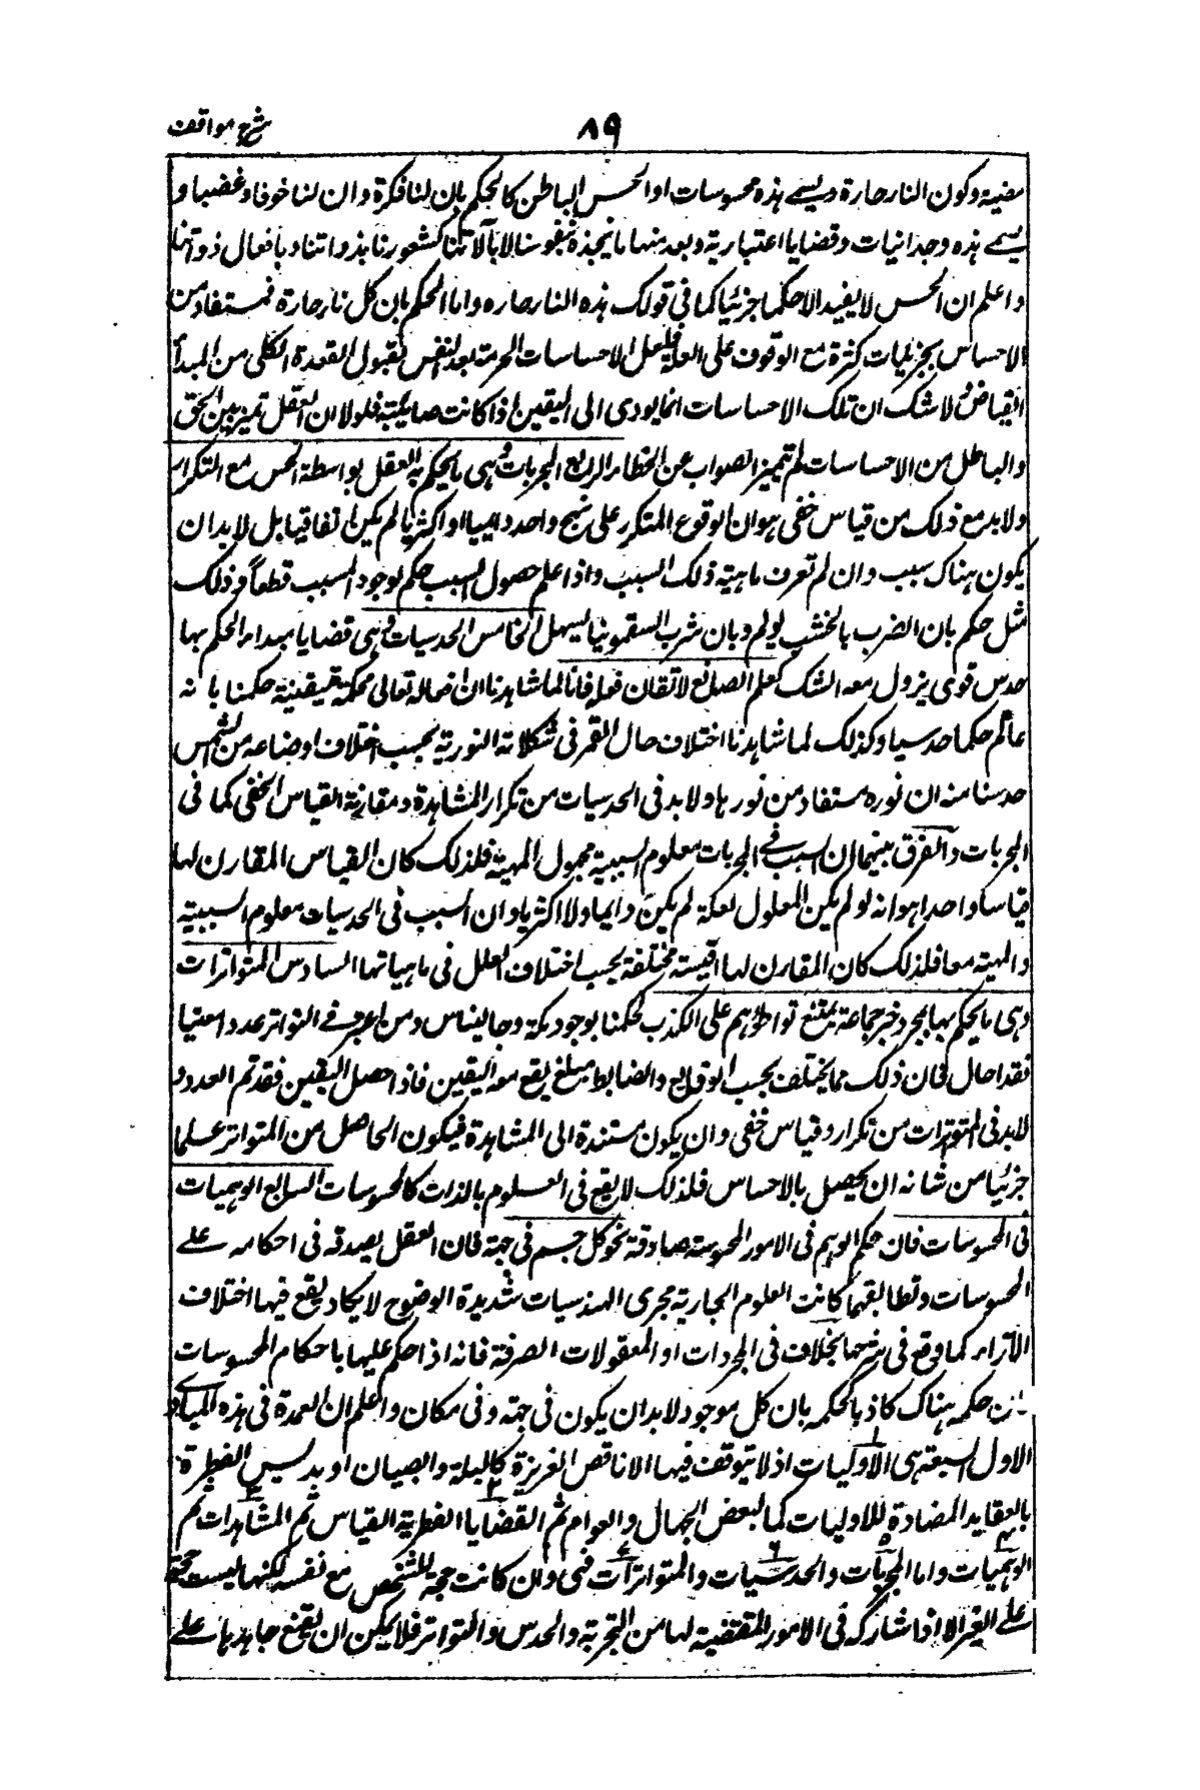 شرح مواقف
٨٩
مضيئة وكون النار حارة ويسمى هذه محسوسات او الحس الباطن كالحكم بان لنا فكرة وان لنا خوفا وغضبا و
يسمى هذه وجدانيات وقضايا اعتبارية وبعد منها ما نجده بنفوسنا لا بآلاتنا كشعورنا بذواتنا وبافعال ذواتنا
واعلم ان الحس لا يفيد الا حكما جزئيا كما فى قولك هذه النار حاره واما الحكم بان كل نار حارة فمستفاد من
الاحساس بجزئيات كثرة مع الوقوف على العلة فلعل الاحساسات الجزئية يعد النفس لقبول العقدة الكلى من المبدأ
الفياض ولا شك ان تلك الاحساسات انما يودى الى اليقين اذا كانت صايبة فلولا ان العقل تميز بين الحق
والباطل من الاحساسات لم تميز الصواب عن الخطاء الرابع المجربات وهى ما يحكم به العقل بواسطة الحس مع التكرار
ولا بد مع ذلك من قياس خفى هو ان الوقوع المتكرر على نهج واحد دايميا او اكثريا لم يكن اتفاقيا بل لا بد ان
يكون هناك سبب وان لم تعرف ماهية ذلك السبب واذا علم حصول السبب حكم بوجود المسبب قطعاً وذلك
مثل حكم بان الضرب بالخشب يولم وبان شرب السقمونيا ليسهل الخامس الحدسيات وهى قضايا مبداء الحكم بها
حدس قوى يزول معه الشك كعلم الصانع لاتقان فعله فانا لما شاهدنا ان افعاله تعالى محكمة متيقنية حكمنا بانه
عالم حكما حدسيا وكذلك لما شاهدنا اختلاف حال القمر فى تشكلاته النورية بحسب اختلاف اوضاعه من الشمس
حدسنا منه ان نوره مستفاد من نورها ولا بد فى الحدسيات من تكرار المشاهدة ومقارنة القياس الخفى كما فى
المجربات والفرق بينهما ان السبب فى المجربات معلوم السببية مجهول المهية فلذلك كان القياس المقارن لها
قياسا واحدا هو انه لو لم يكن المعلول لعلة لم يكن دايما ولا اكثريا وان السبب فى الحدسيات معلوم السببية
والمهية معا فلذلك كان المقارن لها اقيسة مختلفة بحسب اختلاف العلل فى ماهياتها السادس المتواترات
وهى ما يحكم بها بمجرد خبر جماعة يمتنع تواطؤهم على الكذب كحكمنا بوجود مكة وجالينوس ومن اعتبر فى التواتر عددا معينا
فقد احال فان ذلك مما يختلف بحسب الوقايع والضابط مبلغ يقع معه اليقين فاذا حصل اليقين فقد تم العدد و
لا بد فى المتواترات من تكرار وقياس خفى وان يكون مستندة الى المشاهدة فيكون الحاصل من المتواتر علما
جزئيا من شانه ان يحصل بالاحساس فلذلك لا يقع فى العلوم بالذات كالمحسوسات السابع الوهميات
فى المحسوسات فان حكم الوهم فى الامور المحسوسة صادقة نحو كل جسم فى جهة فان العقل يصدقه فى احكامه على
المحسوسات وتطابقهما كانت العلوم الجارية مجرى الهندسيات شديدة الوضوح لا يكاد يقع فيها اختلاف
الآراء كما وقع فى شرحها بخلاف فى المجردات او المعقولات الصرفة فانه اذا حكم عليها باحكام المحسوسات
حكمه هناك كاذبا كحكمه بان كل موجود لا بد ان يكون فى جهة وفى مكان واعلم ان العمدة فى هذه المبادى
الاول السبعة هى الاوليات اذ لا يتوقف فيها الا ناقص الغريزة كالبلة والصبيان او بدليس الفطرة
بالعقايد المضادة للاوليات كما لبعض الجهال والعوام ثم القضايا الفطرية القياس ثم المشاهدات ثم
الوهميات واما المجربات والحدسيات والمتواترات فهى وان كانت حجة للشخص مع نفسه لكنها ليست حجة
على الغير الا اذا شاركه فى الامور المقتضية لها من التجربة والحدس والتواتر فلا يمكن ان يقنع جاحدها على